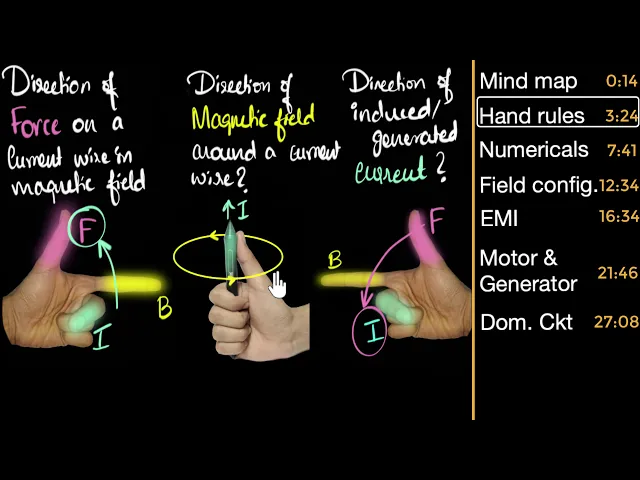 Direction of
Force on a
current wire in
magnetic field
F
I
B
Direction of
Magnetic field
around a current
wire?
I
Direction of
induced/
generated
current?
F
B
I
Mind map 0:14
Hand rules 3:24
Numericals 7:41
Field config. 12:34
EMI 16:34
Motor &
Generator 21:46
Dom. Ckt 27:08